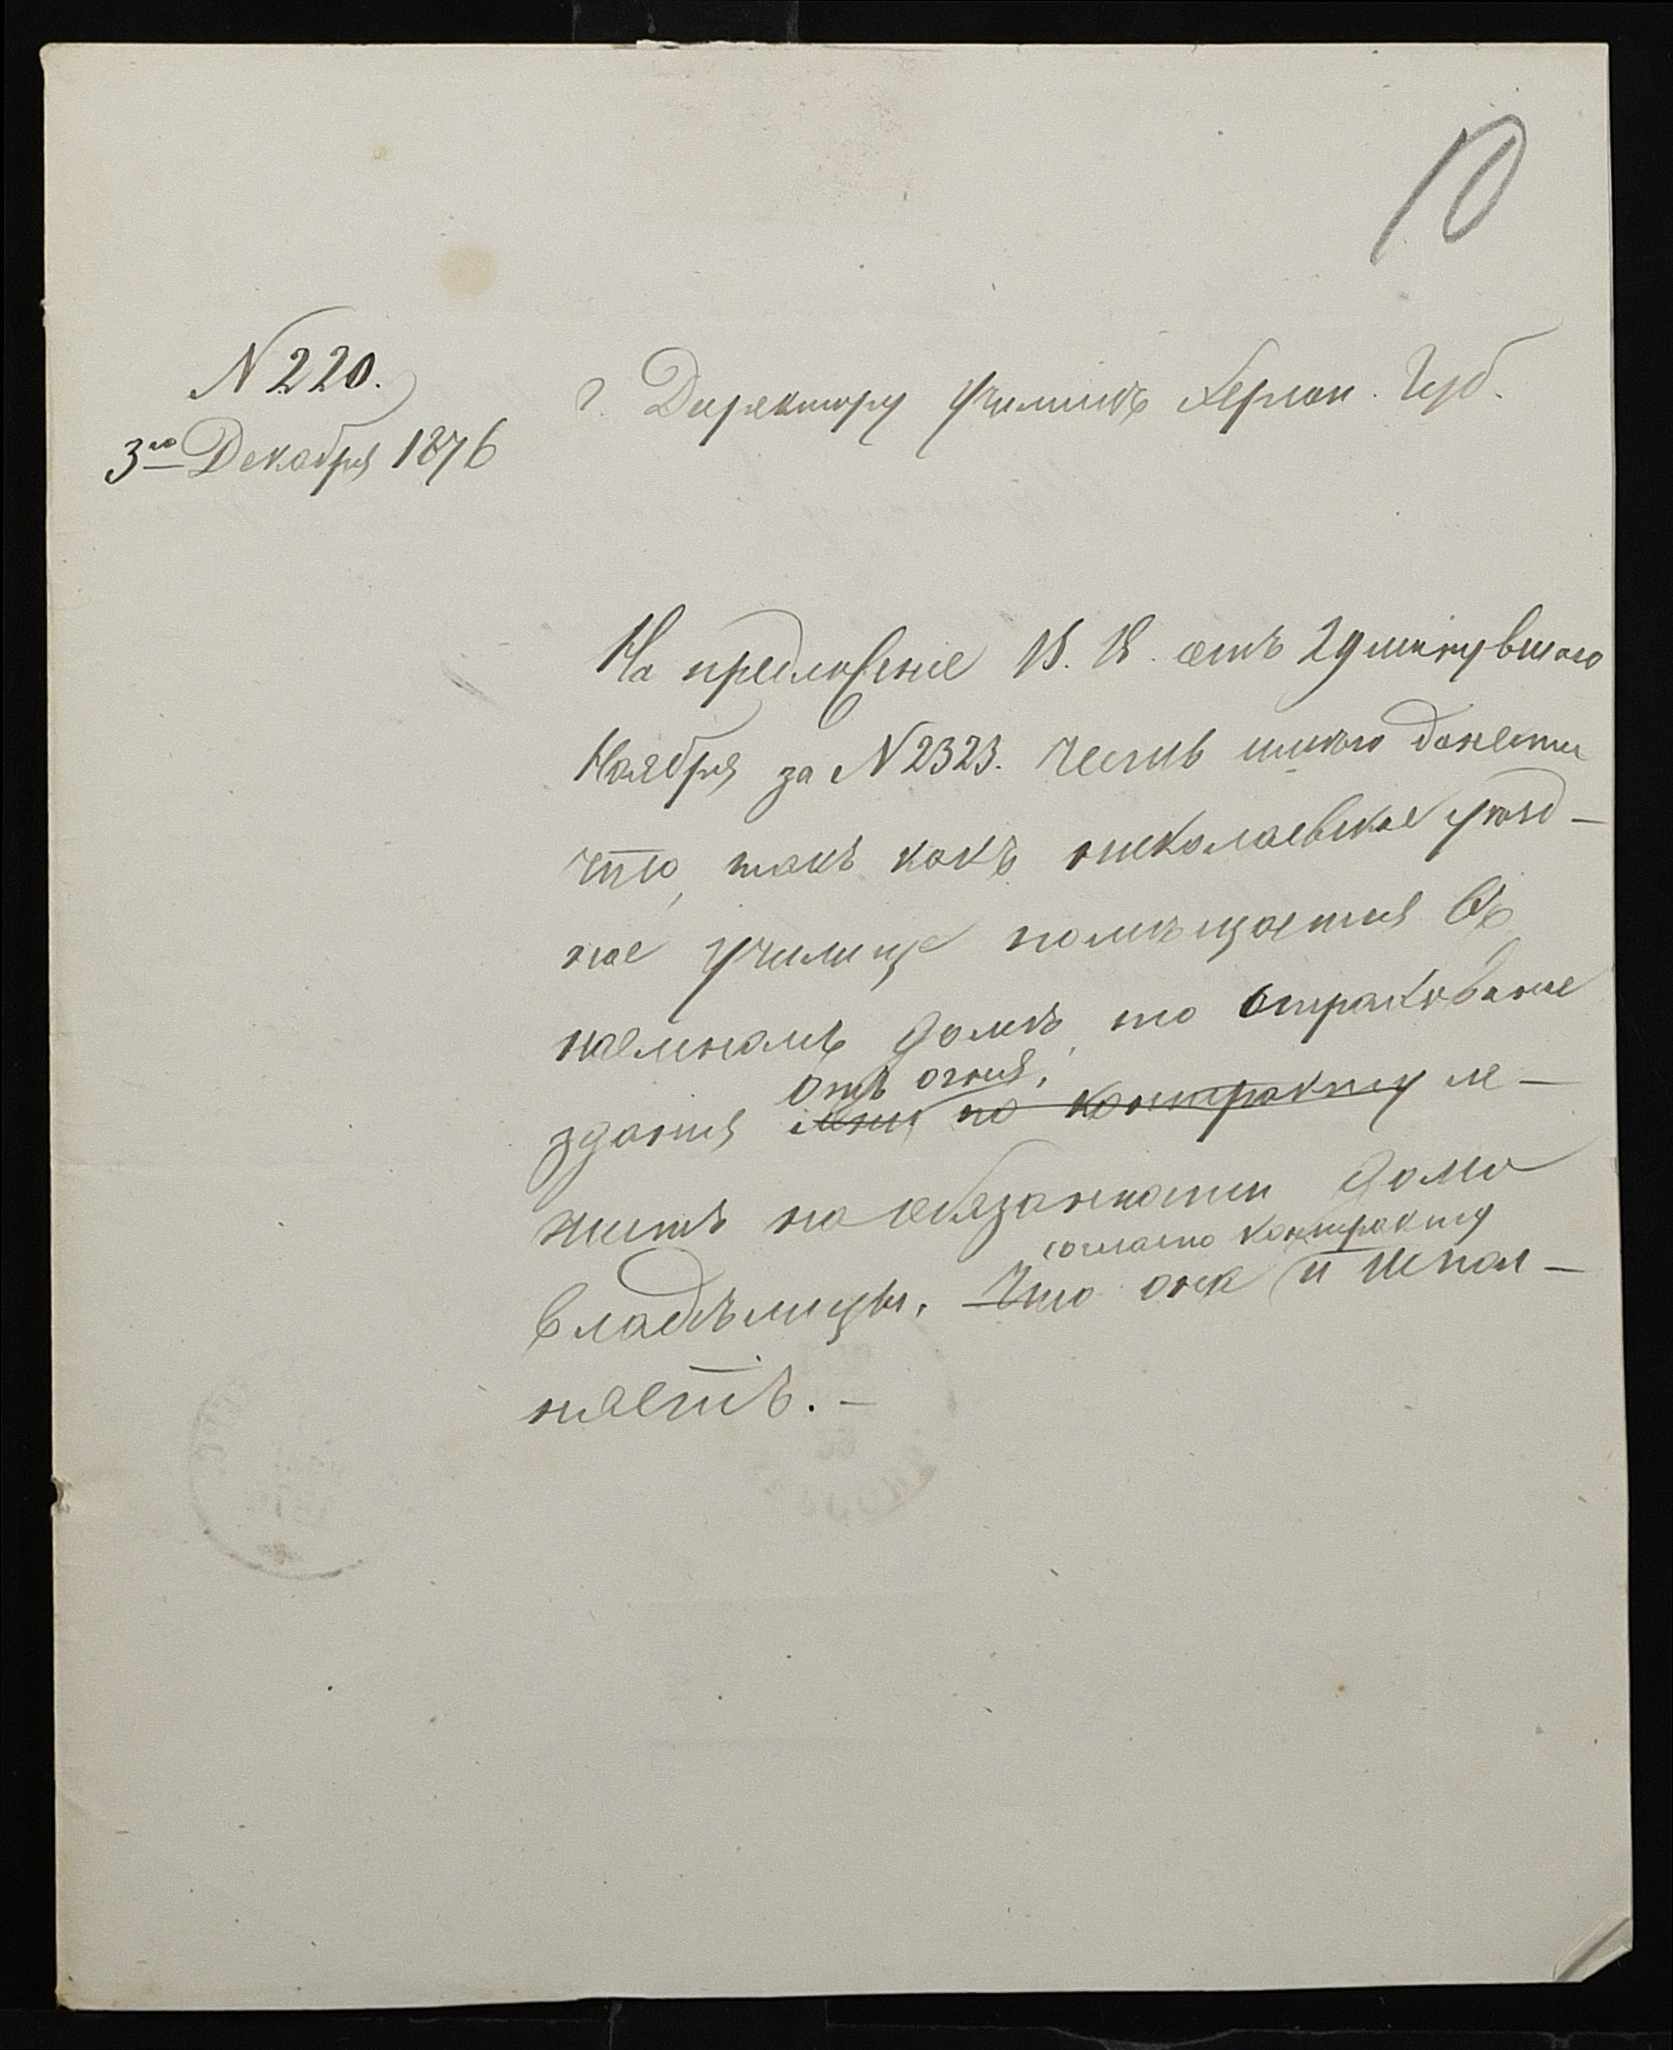 10
N 220.
3го Декабря 1876
г. Директору училищъ Херсон. Губ.
На предложеніе В. В. отъ 29 минувшаго
Ноября за N 2323. честь имѣю донести
что, такъ какъ николаевское уѣзд-
ное училище помѣщается въ
наемномъ домѣ, то страхованіе
отъ огня,
зданія по контракту ле-
житъ на обязанности домо
согласно контракту
владѣлицы, что она и испол-
няетъ. -